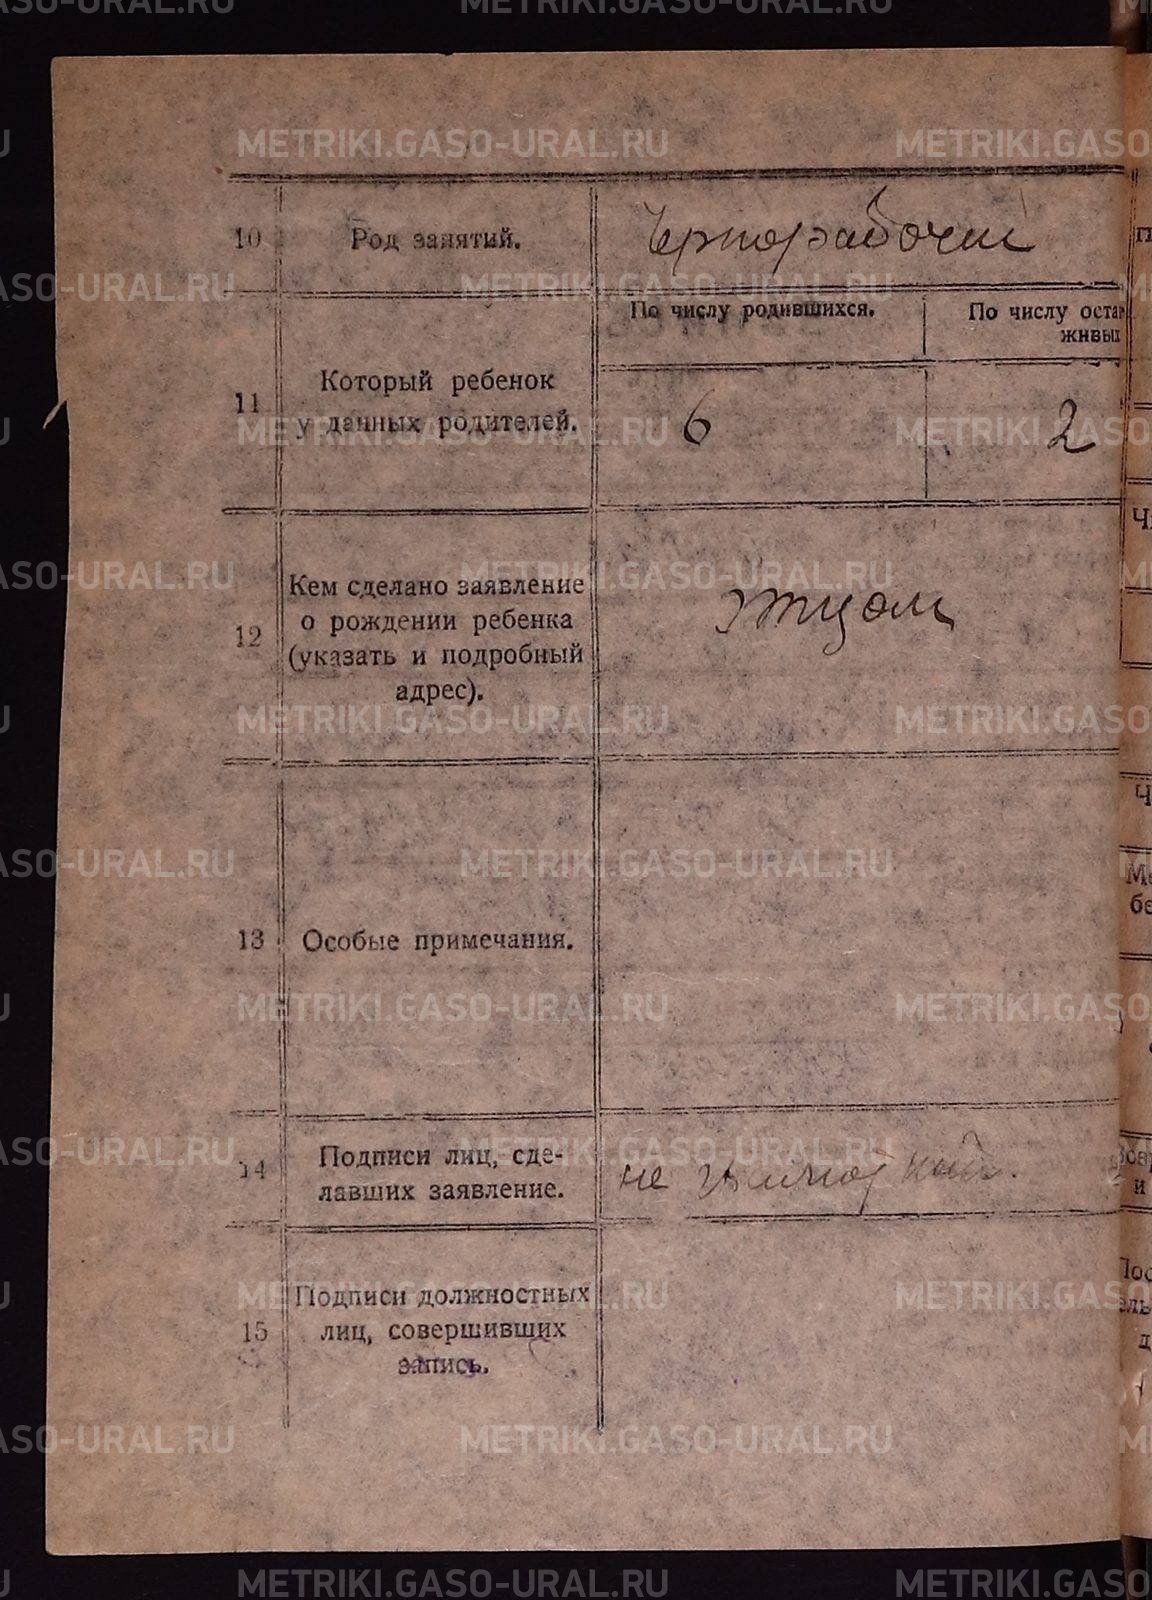 10 Род занятий. Чернорабочий
По числу родившихся. По числу оста
живы
11 Который ребенок
у данных родителей. 6 2
12 Кем сделано заявление
о рождении ребенка
(указать и подробный
адрес). Отцом
13 Особые примечания.
14 Подписи лиц, сде-
лавших заявление. не
15 Подписи должностных
лиц, совершивших
запись.
METRIKI.GASO-URAL.RU